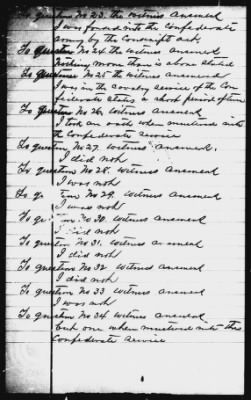 To question No 23. the witness answered
I was forced into the Confederate
army by the Conscript act
To question No 24. the witness answered
Nothing more than is above stated
To question No 25 the witness answered
I was in the cavalry service of the Con
federate States a short period of time
To question No 26. witness answered
I took an oath when mustered into
the Confederate service
To question No 27. witness answered.
I did not
To question No 28. witness answered
I was not
To qu tion No 29. witness answered
I was not
To que tion No 30. witness answered
I did not
To question No 31. witness answered
I did not
To question No 32 witness answered
I did not
To question No 33 witness answered
I was not
To question No 34 witness answered
but one when mustered into the
Confederate service